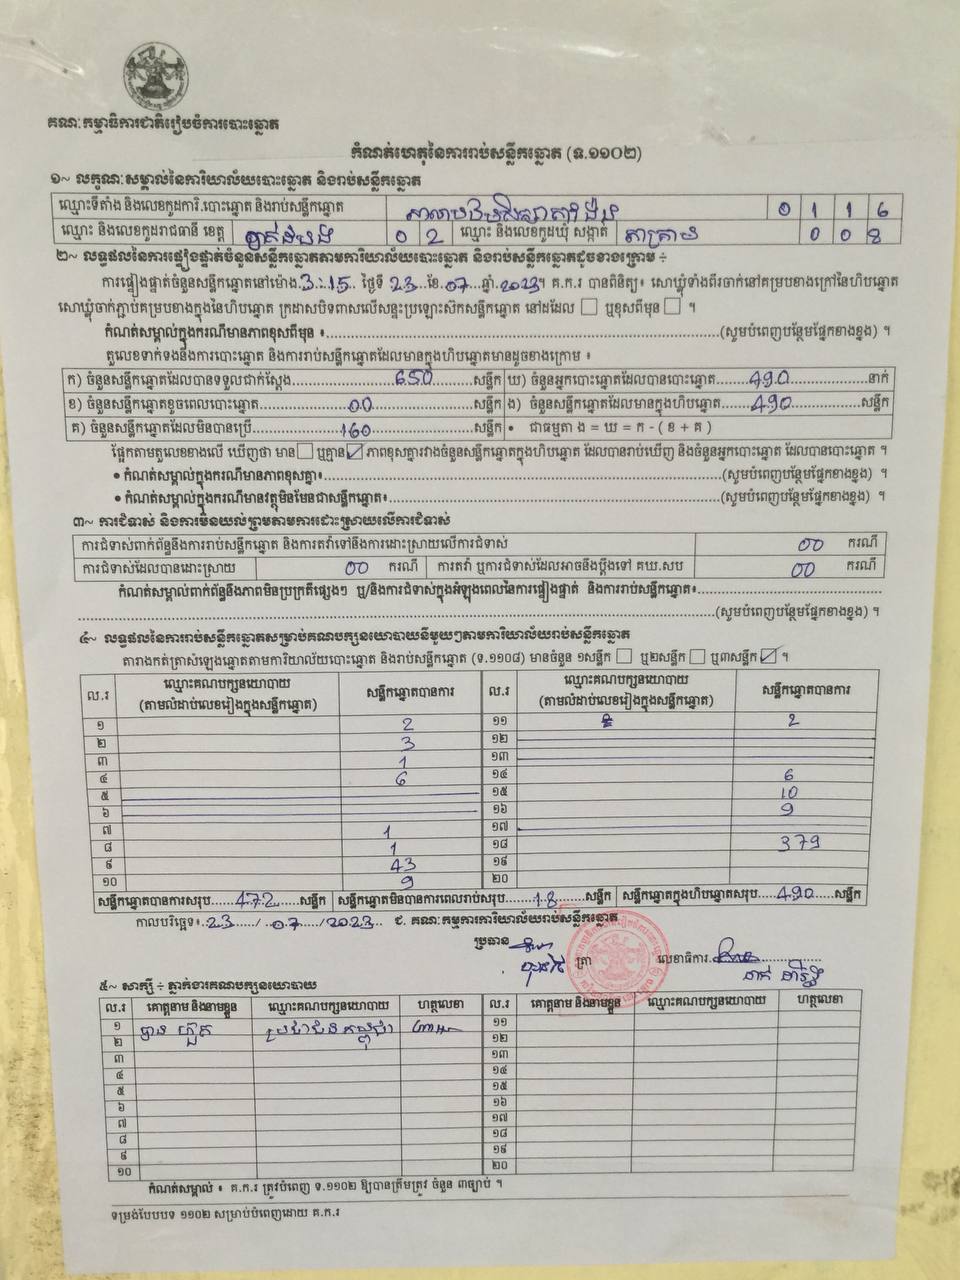 គណៈកម្មាធិការជាតិរៀបចំការបោះឆ្នោត
កំណត់ហេតុនៃការរាប់សន្លឹកឆ្នោត (ទ.១១០២)
១~ លក្ខណៈសម្គាល់នៃការិយាល័យបោះឆ្នោត និងរាប់សន្លឹកឆ្នោត
ឈ្មោះទីតាំង និងលេខកូដការិ.បោះឆ្នោត និងរាប់សន្លឹកឆ្នោត 0 1 1 6
ឈ្មោះ និងលេខកូដរាជធានី ខេត្ត បាត់ដំបង 0 2 ឈ្មោះ និងលេខកូដឃុំ សង្កាត់ តាក្រាម 0 0 8
២~ លទ្ធផលនៃការផ្ទៀងផ្ទាត់ចំនួនសន្លឹកឆ្នោតតាមការិយាល័យបោះឆ្នោត និងរាប់សន្លឹកឆ្នោតដូចខាងក្រោម ÷
ការផ្ទៀងផ្ទាត់ចំនួនសន្លឹកឆ្នោតនៅម៉ោង.3.:.15.. ថ្ងៃទី 23..ខែ.07...ឆ្នាំ.2023។ គ.ក.រ បានពិនិត្យ៖ សោឃ្លុំទាំងពីរចាក់នៅគម្របខាងក្រៅនៃហិបឆ្នោត
សោឃ្លុំចាក់ភ្ជាប់គម្របខាងក្នុងនៃហិបឆ្នោត ក្រដាសបិទពាសលើសន្ទះប្រឡោះស៊ីកសន្លឹកឆ្នោត នៅដដែល ☐ ឬខុសពីមុន ☐ ។
កំណត់សម្គាល់ក្នុងករណីមានភាពខុសពីមុន ៖..........(សូមបំពេញបន្ថែមផ្នែកខាងខ្នង) ។
តួលេខទាក់ទងនឹងការបោះឆ្នោត និងការរាប់សន្លឹកឆ្នោតដែលមានក្នុងហិបឆ្នោតមានដូចខាងក្រោម ៖
ក) ចំនួនសន្លឹកឆ្នោតដែលបានទទួលជាក់ស្ដែង.....650.....សន្លឹក ឃ) ចំនួនអ្នកបោះឆ្នោតដែលបានបោះឆ្នោត.....490.....នាក់
ខ) ចំនួនសន្លឹកឆ្នោតខូចពេលបោះឆ្នោត.....00.....សន្លឹក ង) ចំនួនសន្លឹកឆ្នោតដែលមានក្នុងហិបឆ្នោត.....490.....សន្លឹក
គ) ចំនួនសន្លឹកឆ្នោតដែលមិនបានប្រើ.....160.....សន្លឹក • ជាធម្មតា ង = ឃ = ក - ( ខ + គ )
ផ្អែកតាមតួលេខខាងលើ ឃើញថា មាន ☐ ឬគ្មាន ☑ ភាពខុសគ្នារវាងចំនួនសន្លឹកឆ្នោតក្នុងហិបឆ្នោត ដែលបានរាប់ឃើញ និងចំនួនអ្នកបោះឆ្នោត ដែលបានបោះឆ្នោត ។
• កំណត់សម្គាល់ក្នុងករណីមានភាពខុសគ្នា៖..........(សូមបំពេញបន្ថែមផ្នែកខាងខ្នង) ។
• កំណត់សម្គាល់ក្នុងករណីមានវត្ថុមិនមែនជាសន្លឹកឆ្នោត៖..........(សូមបំពេញបន្ថែមផ្នែកខាងខ្នង) ។
៣~ ការជំទាស់ និងការមិនយល់ព្រមតាមការដោះស្រាយលើការជំទាស់
ការជំទាស់ពាក់ព័ន្ធនឹងការរាប់សន្លឹកឆ្នោត និងការតវ៉ាទៅនឹងការដោះស្រាយលើការជំទាស់ 00 ករណី
ការជំទាស់ដែលបានដោះស្រាយ 00 ករណី ការតវ៉ា ឬការជំទាស់ដែលអាចនឹងប្ដឹងទៅ គឃ.សប 00 ករណី
កំណត់សម្គាល់ពាក់ព័ន្ធនឹងភាពមិនប្រក្រតីផ្សេងៗ ឬ/និងការជំទាស់ក្នុងអំឡុងពេលនៃការផ្ទៀងផ្ទាត់ និងការរាប់សន្លឹកឆ្នោត៖..........
..........(សូមបំពេញបន្ថែមផ្នែកខាងខ្នង) ។
៤~ លទ្ធផលនៃការរាប់សន្លឹកឆ្នោតសម្រាប់គណបក្សនយោបាយនីមួយៗតាមការិយាល័យរាប់សន្លឹកឆ្នោត
តារាងកត់ត្រាសំឡេងឆ្នោតតាមការិយាល័យបោះឆ្នោត និងរាប់សន្លឹកឆ្នោត (ទ.១១០៨) មានចំនួន ១សន្លឹក ☐ ឬ២សន្លឹក ☐ ឬ៣សន្លឹក ☑ ។
ល.រ ឈ្មោះគណបក្សនយោបាយ (តាមលំដាប់លេខរៀងក្នុងសន្លឹកឆ្នោត) សន្លឹកឆ្នោតបានការ ល.រ ឈ្មោះគណបក្សនយោបាយ (តាមលំដាប់លេខរៀងក្នុងសន្លឹកឆ្នោត) សន្លឹកឆ្នោតបានការ
១ 2 ១១ 2
២ 3 ១២
៣ 1 ១៣
៤ 6 ១៤ 6
៥ ១៥ 10
៦ ១៦ 9
៧ 1 ១៧
៨ 1 ១៨ 379
៩ 43 ១៩
១០ 9 ២០
សន្លឹកឆ្នោតបានការសរុប....472....សន្លឹក សន្លឹកឆ្នោតមិនបានការពេលរាប់សរុប....18...សន្លឹក សន្លឹកឆ្នោតក្នុងហិបឆ្នោតសរុប....490...សន្លឹក
កាលបរិច្ឆេទ៖..23...../...07...../...2023... ជ. គណៈកម្មការការិយាល័យរាប់សន្លឹកឆ្នោត
ប្រធាន ត្រា លេខាធិការ
៥~ សាក្សី ÷ ភ្នាក់ងារគណបក្សនយោបាយ
ល.រ គោត្តនាម និងនាមខ្លួន ឈ្មោះគណបក្សនយោបាយ ហត្ថលេខា ល.រ គោត្តនាម និងនាមខ្លួន ឈ្មោះគណបក្សនយោបាយ ហត្ថលេខា
១ ប្រជាជនកម្ពុជា ១១
២ ១២
៣ ១៣
៤ ១៤
៥ ១៥
៦ ១៦
៧ ១៧
៨ ១៨
៩ ១៩
១០ ២០
កំណត់សម្គាល់ ៖ គ.ក.រ ត្រូវបំពេញ ទ.១១០២ ឱ្យបានត្រឹមត្រូវ ចំនួន ៣ច្បាប់ ។
ទម្រង់បែបបទ ១១០២ សម្រាប់បំពេញដោយ គ.ក.រ